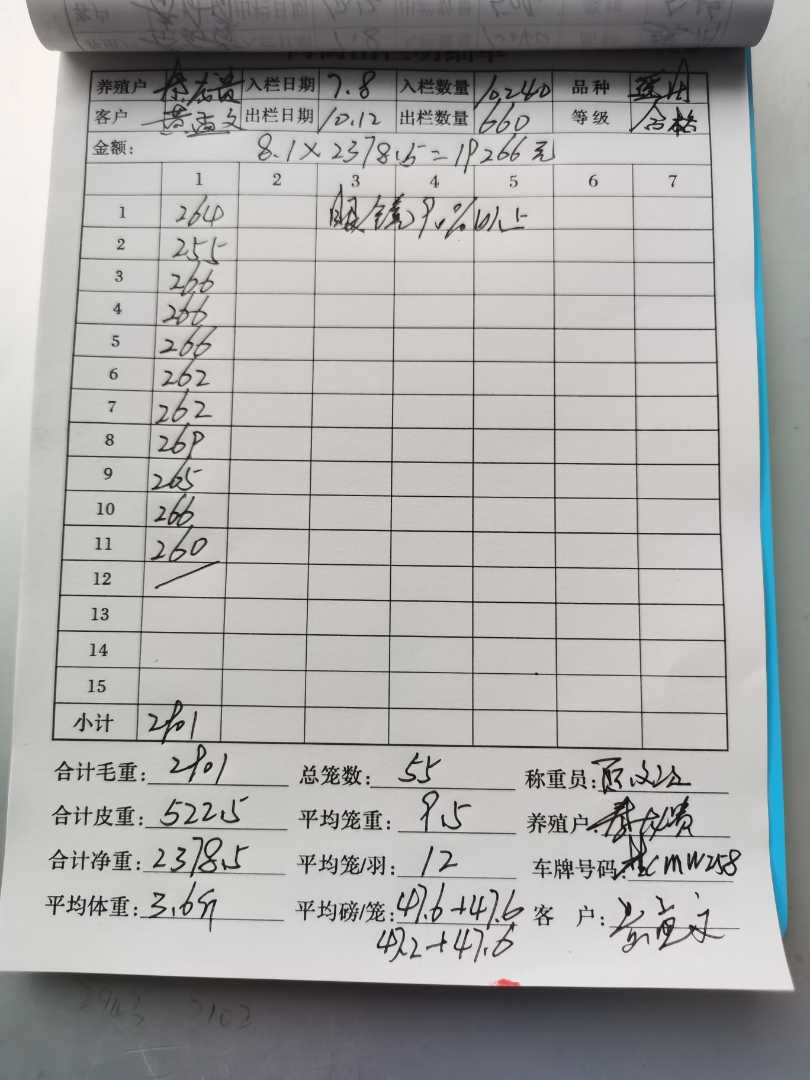 养殖户 入栏日期 7.8 入栏数量 10240 品种
客户 黄孟文 出栏日期 10.12 出栏数量 660 等级 合格
金额: 8.1×2378.5=19266元
1 2 3 4 5 6 7
1 264 眼镜90%以上
2 255
3 266
4 266
5 266
6 262
7 262
8 269
9 265
10 266
11 260
12
13
14
15
小计 2901
合计毛重: 2901 总笼数: 55 称重员:
合计皮重: 522.5 平均笼重: 9.5 养殖户
合计净重: 2378.5 平均笼/羽: 12 车牌号码: 桂CMW258
平均体重: 3.6斤 平均磅/笼: 47.6+47.6 客 户:
47.2+47.6